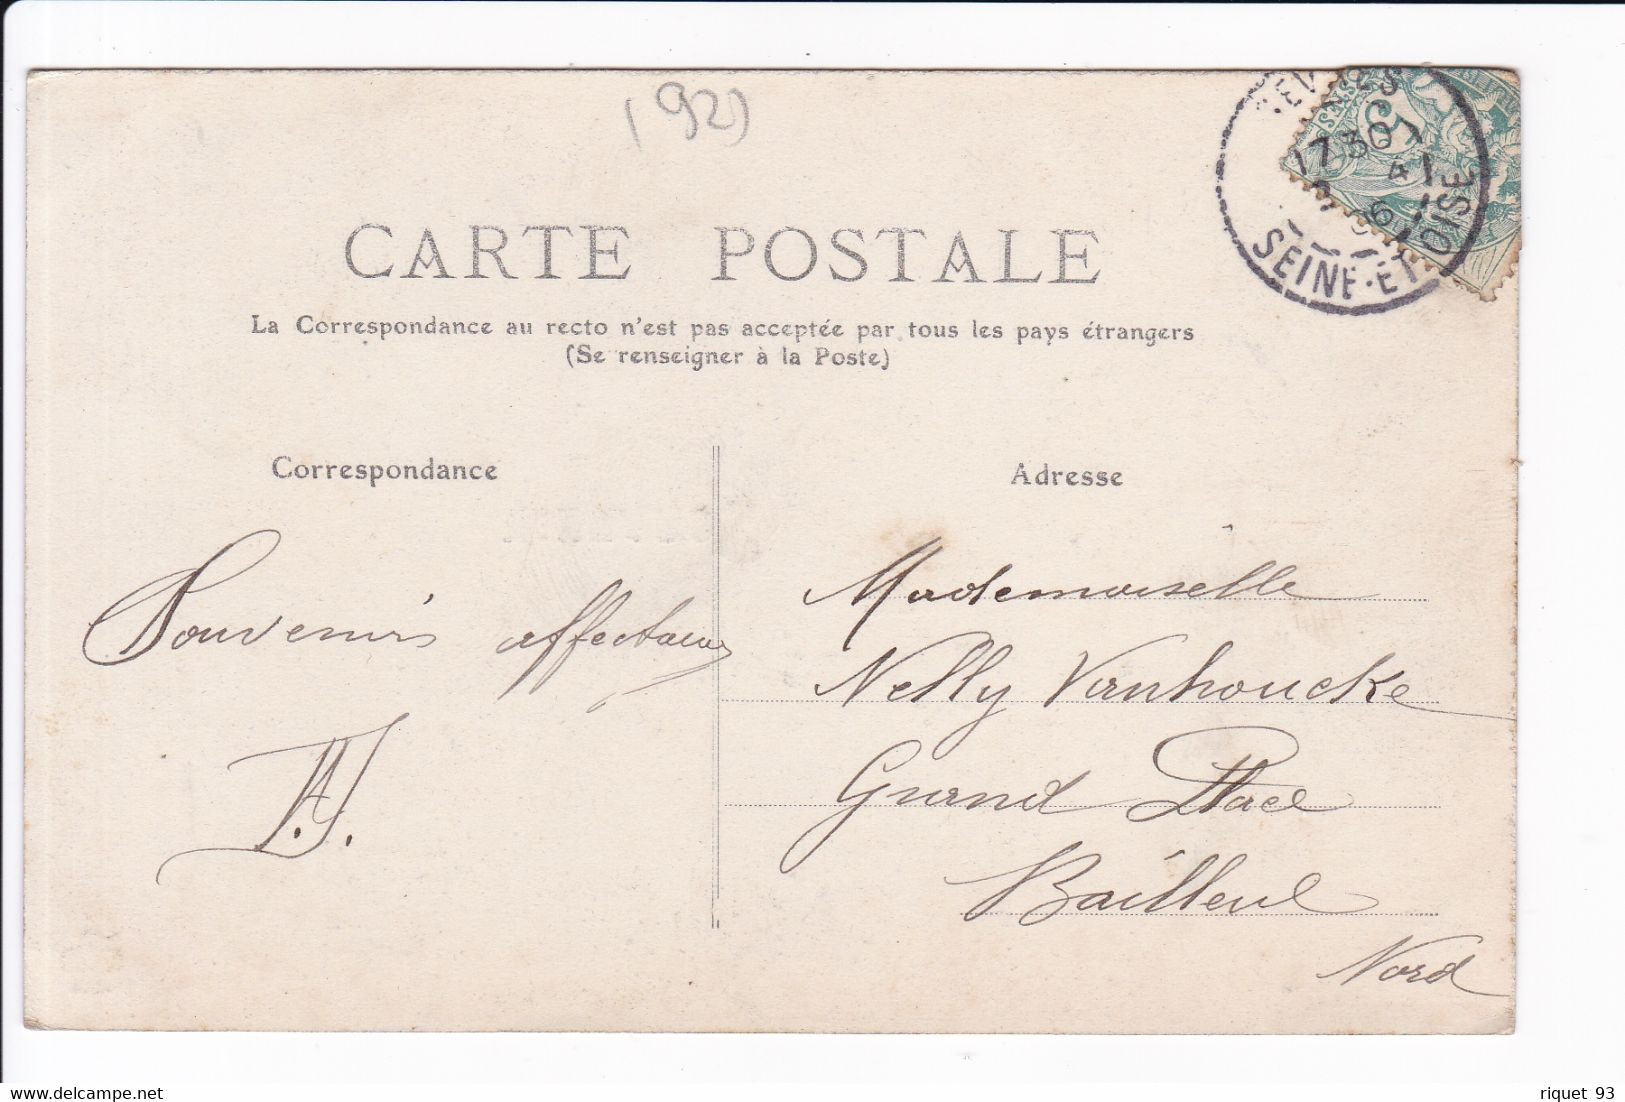 (92)
CARTE POSTALE
La Correspondance au recto n'est pas acceptée par tous les pays étrangers
(Se renseigner à la Poste)
5
17 30
SEINE-ET-OISE
Correspondance
Adresse
Souvenirs affectueux
Mademoiselle
Nelly Vanhoucke
Grand Place
Bailleul
Nord
riquet 93